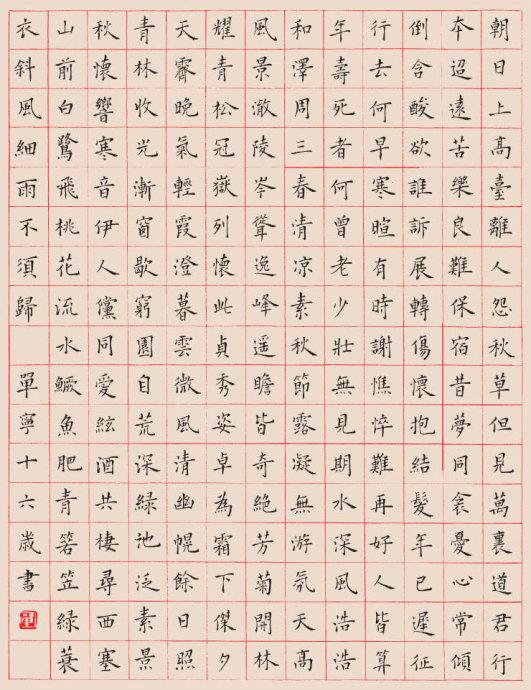 朝日上高臺離人怨秋草但見萬裏道君行
本迢遠苦樂良難保宿昔夢同衾憂心常傾
倒含酸欲誰訴展轉傷懷抱結髮年已遲征
行去何早寒暄有時謝憔悴難再好人皆算
年壽死者何曾老少壯無見期水深風浩浩
和澤周三春清凉素秋節露凝無游氛天高
風景澈陵岑聳逸峰遥瞻皆奇絕芳菊開林
耀青松冠嶽列懷此貞秀姿卓為霜下傑夕
天霽晚氣輕霞澄暮雲微風清幽幌餘日照
青林收光漸窗歇窮園自荒深綠池泛素景
秋懷響寒音伊人儻同愛絃酒共棲尋西塞
山前白鷺飛桃花流水鱖魚肥青箬笠綠蓑
衣斜風細雨不須歸 單寧十六歲書